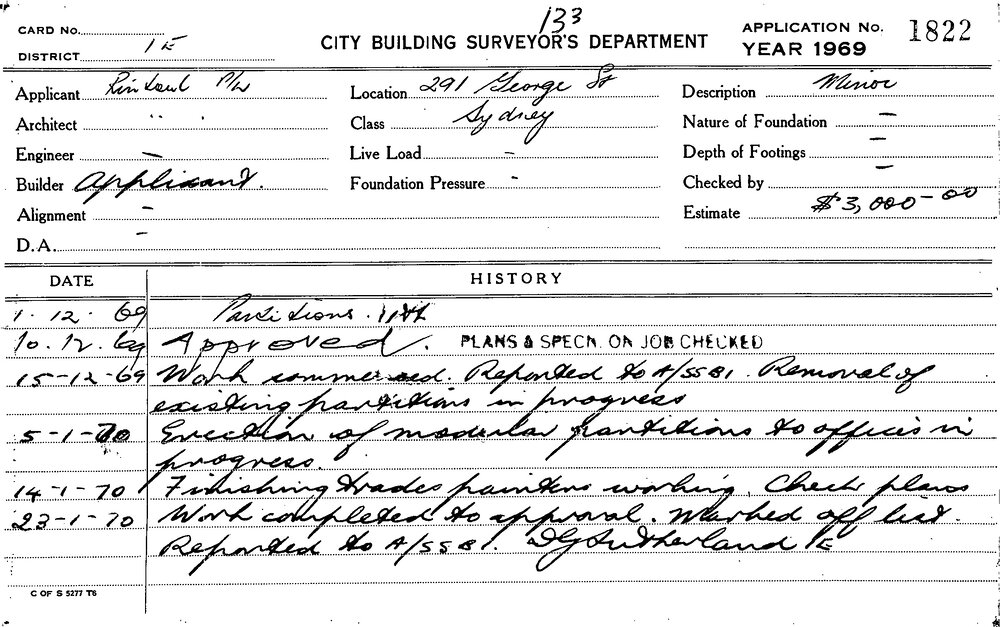 133
CARD No.
CITY BUILDING SURVEYOR'S DEPARTMENT
APPLICATION No. 1822
YEAR 1969
DISTRICT 1E
Applicant P/L
Location 291 George St
Description Minor
Architect " "
Class Sydney
Nature of Foundation –
Engineer –
Live Load –
Depth of Footings –
Builder Applicant.
Foundation Pressure -
Checked by –
Alignment –
Estimate $3,000-00
D.A. –
DATE HISTORY
1. 12. 69 Partitions.
10. 12. 69 Approved. PLANS & SPECN. ON JOB CHECKED
15-12-69 Work commenced. Reported to A/SSB1. Removal of
existing partitions in progress
5-1-70 Erection of modular partitions to offices in
progress.
14-1-70 Finishing trades painters working. Check plans
23-1-70 Work completed to approval. Marked off list.
Reported to A/SSB1. DGSutherland 1E
C OF S 5277 T6